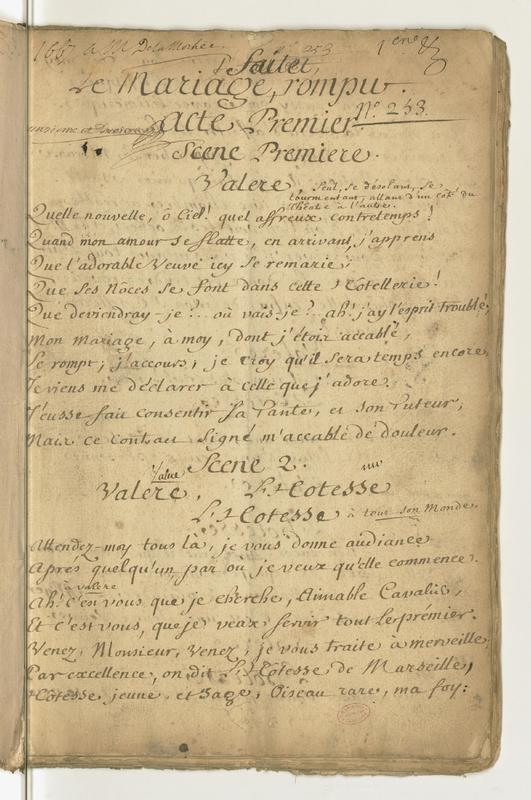 1667 a M. De la Morliere
n.° 253
1ere &
Le Mariage, fait et rompu.
N.° 253
Acte Premier.
Scene Premiere.
Valere, seul, se désolant, se
tourmentant, allant d'un côté du
Théatre à l'autre.
Quelle nouvelle, ô Ciel! quel affreux contretemps!
Quand mon amour se flatte, en arrivant j'apprens
Que l'adorable Veuve icy se remarie;
Que ses Nôces se font dans cette Hotellerie!
Que deviendray-je?... où vais-je?... ah! j'ay l'esprit troublé;
Mon Mariage, à moy, dont j'étois accablé,
Se rompt; j'accours; je croy qu'il sera temps encore,
Je viens me déclarer à celle que j'adore.
J'eusse fait consentir sa Tante, et son Tuteur,
Mais ce Contract signé m'accable de douleur.
Scene 2.
Valere, L'Hotesse
L'Hotesse à tout son Monde.
Attendez-moy tous là, je vous donne audiance
Après quelqu'un par où je veux qu'elle commence.
à valere
Ah! c'est vous que je cherche, Aimable Cavalier,
Et c'est vous, que je veux servir tout le prémier.
Venez, Monsieur, Venez; je vous traite à merveille,
Par excellence, on dit l'Hotesse de Marseille,
Hôtesse jeune et Sage, Oiseau rare, ma foy: